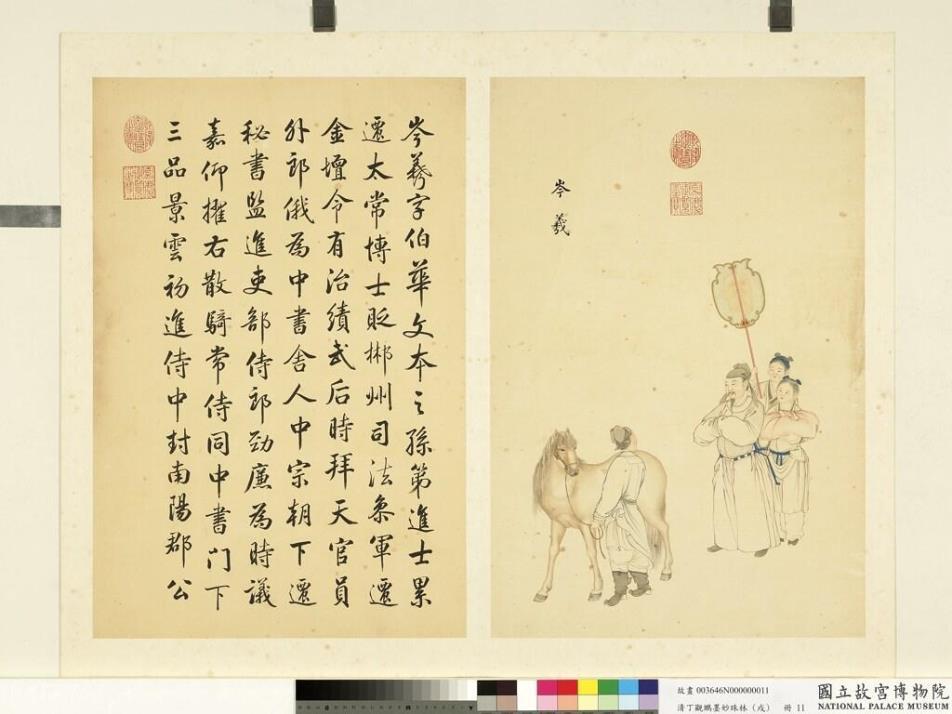 岑羲
岑羲字伯華文本之孫第進士累
遷太常博士貶郴州司法叅軍遷
金壇令有治績武后時拜天官員
外郎俄為中書舍人中宗朝下遷
秘書監進吏部侍郎勁廉為時議
嘉仰擢右散騎常侍同中書門下
三品景雲初進侍中封南陽郡公
故畫 003646N000000011
清丁觀鵬墨妙珠林(戌) 冊 11
國立故宮博物院
NATIONAL PALACE MUSEUM